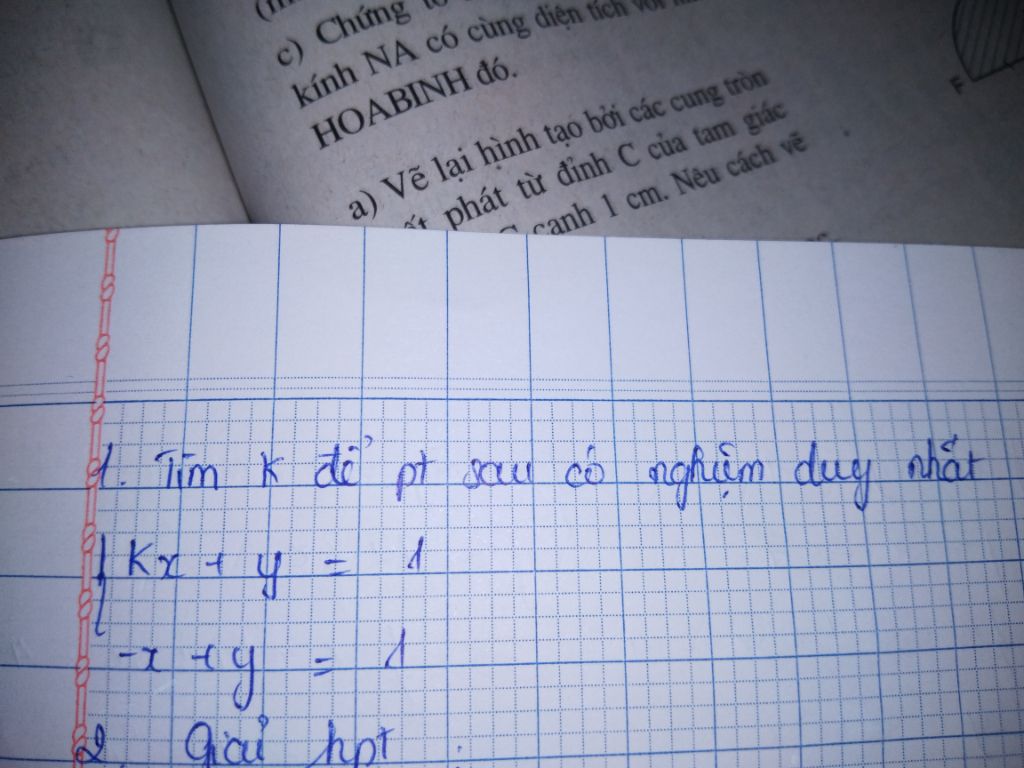 c) Chứng
kính NA có cùng diện tích với
HOABINH đó.
a) Vẽ lại hình tạo bởi các cung tròn
phát từ đỉnh C của tam giác
cạnh 1 cm. Nêu cách vẽ
F
1. Tìm K để pt sau có nghiệm duy nhất
Kx + y = 1
-x + y = 1
2. Giải hpt